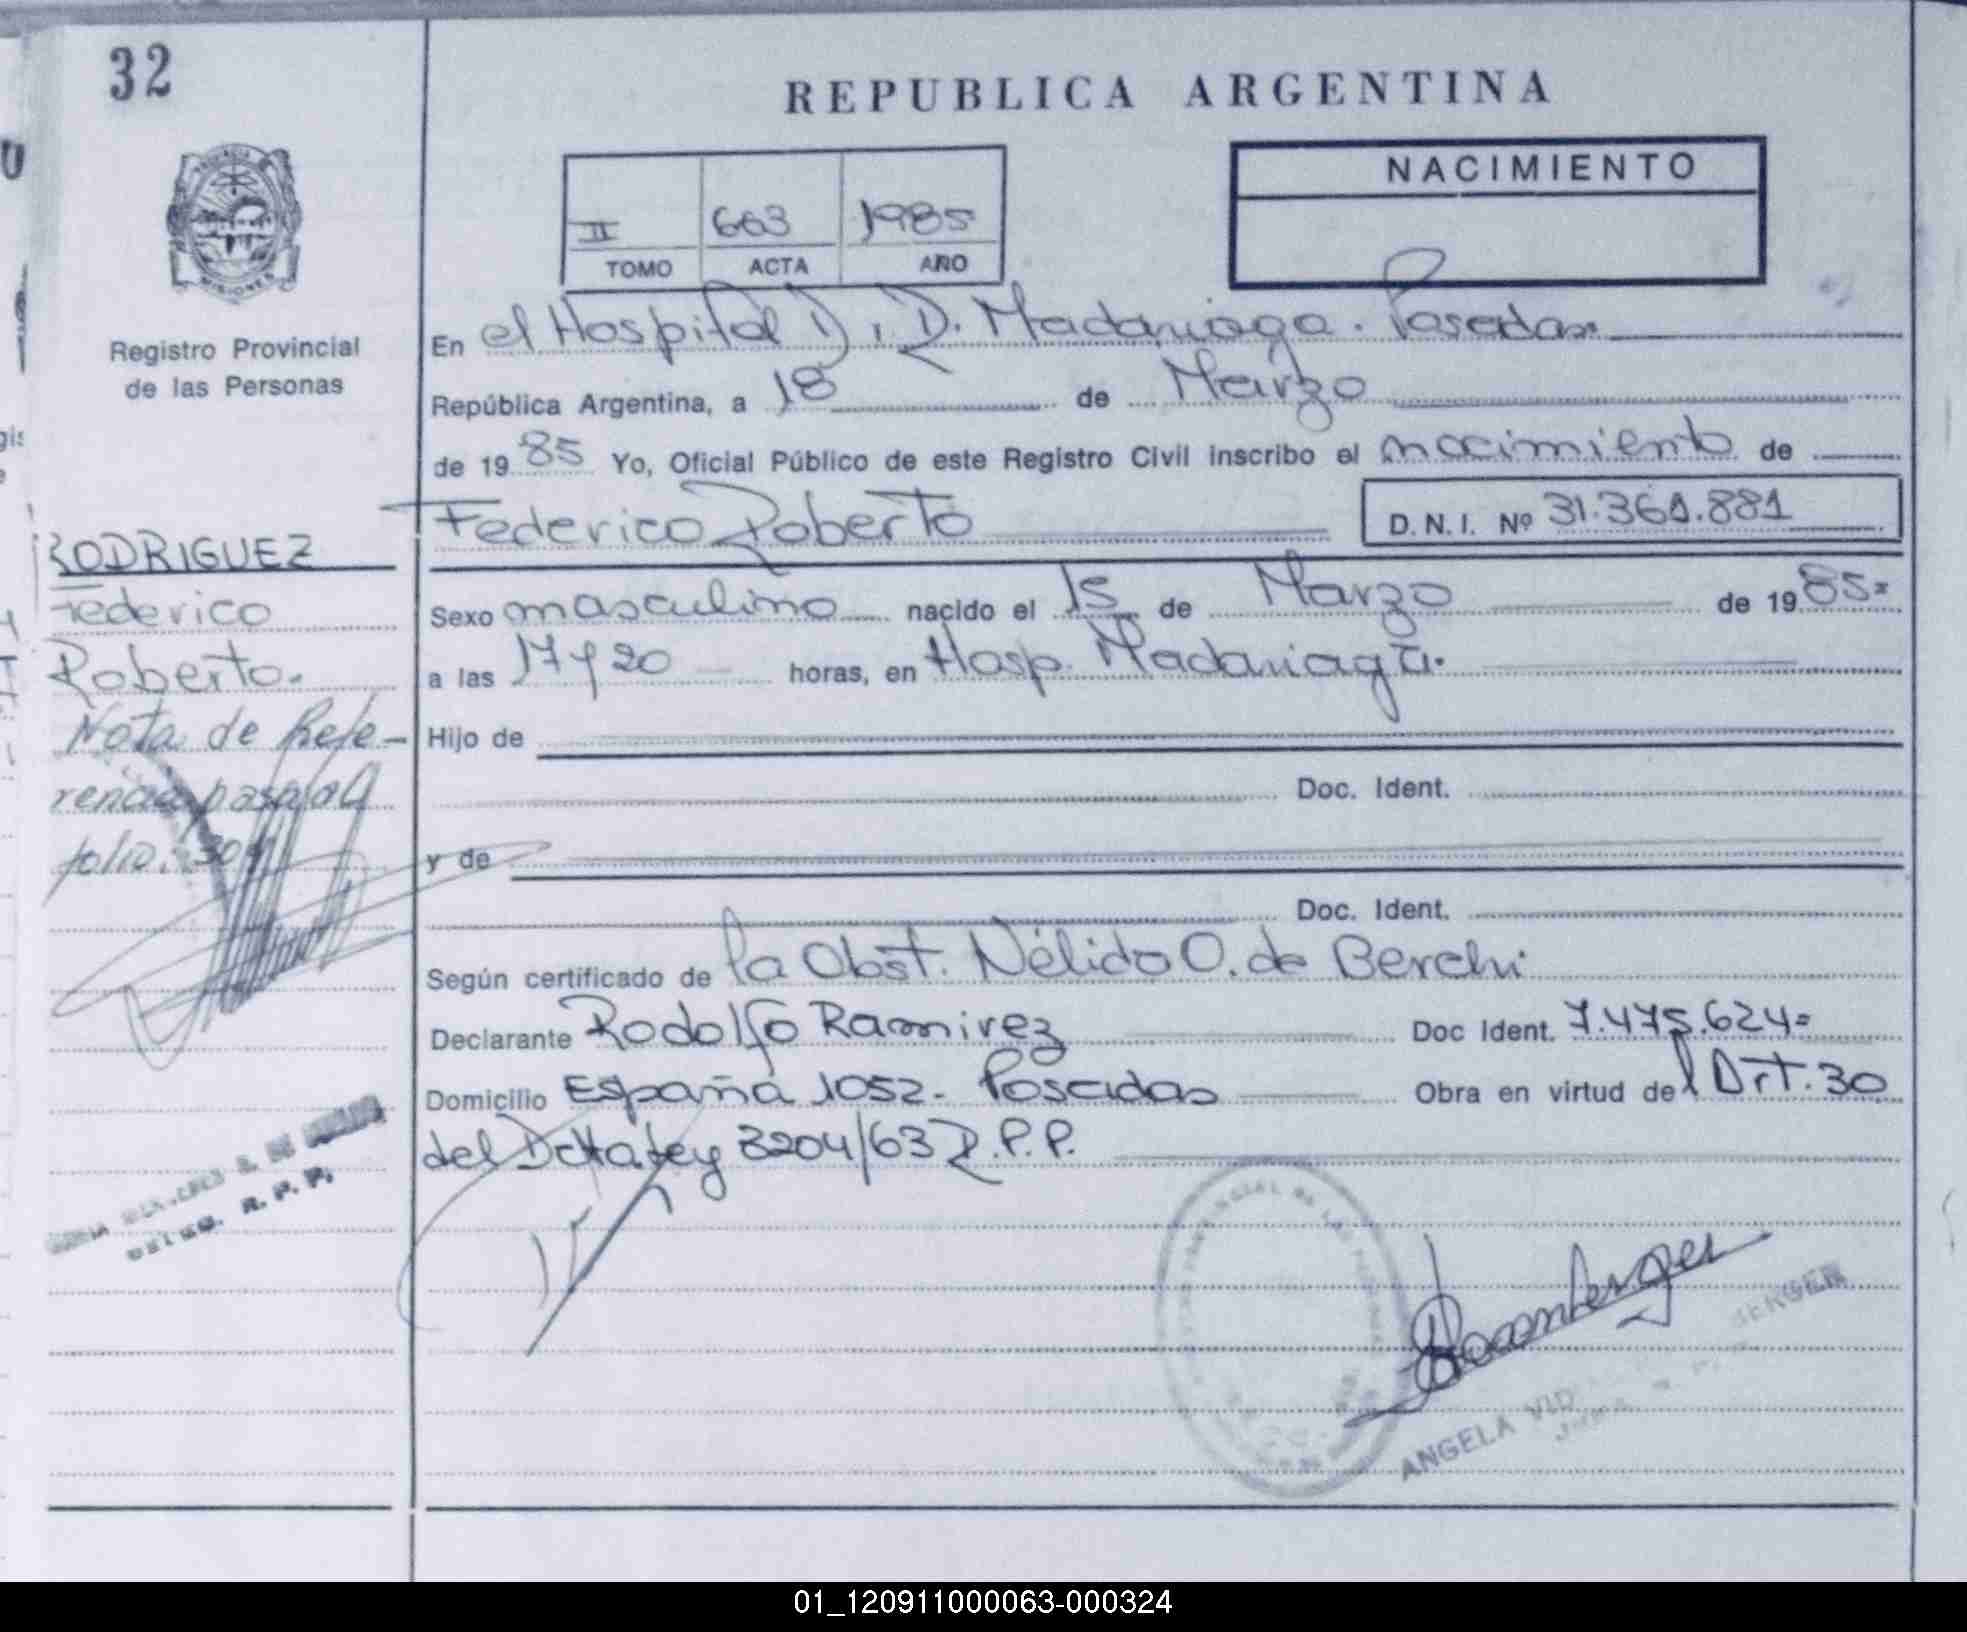 32
REPUBLICA ARGENTINA
NACIMIENTO
II 663 1985
TOMO ACTA AÑO
PROVINCIA DE
MISIONES
Registro Provincial
de las Personas
En el Hospital D. R. Madariaga. Posadas
República Argentina, a 18 de Marzo
de 1985 Yo, Oficial Público de este Registro Civil inscribo el nacimiento de
Federico Roberto
D.N.I. Nº 31.361.881
RODRIGUEZ
Federico
Roberto.
Nota de Refe-
rencia pasa al
folio. 309
Sexo masculino nacido el 15 de Marzo de 1985=
a las 17 y 20 horas, en Hosp. Madariaga.
Hijo de
Doc. Ident.
y de
Doc. Ident.
Según certificado de la Obst. Nélida O. de Berchi
Declarante Rodolfo Ramirez Doc Ident. 7.475.624=
Domicilio España 1052- Posadas Obra en virtud del Art. 30
del Dcto Ley 8204/63 R.P.P.
R. P. P.
ANGELA
01_120911000063-000324